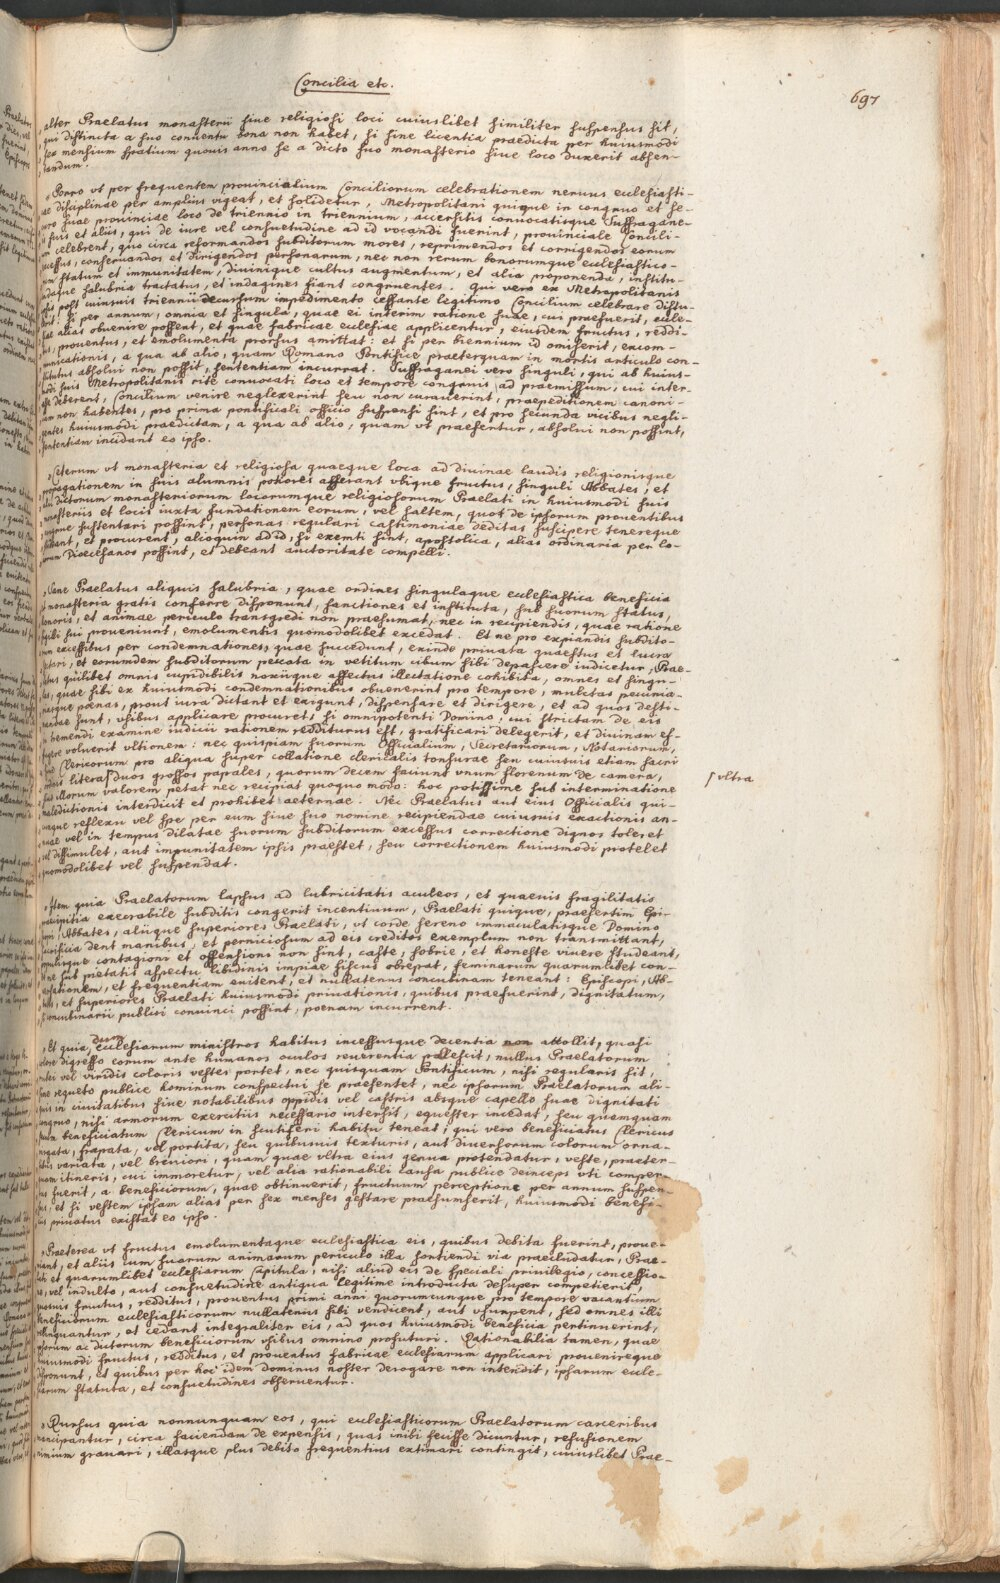 Concilia etc.
697
alter Praelatus monasterii siue religiosi loci cuiuslibet similiter suspensus sit,
qui distincta a suo conuentu bona non habet, si sine licentia praedicta per huiusmodi
sex mensium spatium quouis anno se a dicto suo monasterio siue loco duxerit absen-
tandum.
Porro vt per frequentem prouincialium Conciliorum celebrationem neruus ecclesiasti-
cae disciplinae per amplius vigeat, et solidetur, Metropolitani quique in congruo et se-
curo suae prouinciae loco de triennio in triennium, accersitis conuocatisque Suffragane-
is suis et aliis, qui de iure vel consuetudine ad id vocandi fuerint, prouinciale Concili-
um celebrent, quo circa reformandos subditorum mores, reprimendos et corrigendos eorum
excessus, conseruandos et dirigendos personarum, nec non rerum bonorumque ecclesiastico-
rum statum et immunitatem, diuinique cultus augmentum, et alia proponenda, institu-
endaque salubria tractatus, et indagines fiant congruentes. Qui vero ex Metropolitanis
ipsis post cuiusuis triennii decursum impedimento cessante legitimo Concilium celebrare distu-
lerit: si per annum, omnia et singula, quae ei interim ratione suae, cui praefuerit, eccle-
siae alias obuenire possent, et quae fabricae ecclesiae applicentur, eiusdem fructus, reddi-
tus, prouentus, et emolumenta prorsus amittat: et si per biennium id omiserit, excom-
municationis, a qua ab alio, quam Romano Pontifice praeterquam in mortis articulo con-
stitutus absolui non possit, sententiam incurrat. Suffraganei vero singuli, qui ab huius-
modi suis Metropolitanis rite conuocati loco et tempore congruis ad praemissum, cui inter-
esse deberent, Concilium venire neglexerint seu non curauerint, praepeditionem canoni-
cam non habentes, pro prima pontificali officio suspensi sint, et pro secunda vicibus negli-
gentes huiusmodi praedictam, a qua ab alio, quam vt praefertur, absolui non possint,
sententiam incidant eo ipso.
Ceterum vt monasteria et religiosa quaeque loca ad diuinae laudis religionisque
propagationem in suis alumnis potiores afferant vbique fructus, singuli Abbates, et
alii dictorum monasteriorum locorumque religiosorum Praelati in huiusmodi suis
monasteriis et locis iuxta fundationem eorum, vel saltem, quot de ipsorum prouentibus
congrue sustentari possint, personas regulari castimoniae deditas suscipere tenereque
studeant, et procurent, alioquin ad id, si exempti sint, apostolica, alias ordinaria per lo-
corum Dioecesanos possint, et debeant auctoritate compelli.
Sane Praelatus aliquis salubria, quae ordines singulaque ecclesiastica beneficia
et monasteria gratis conferre disponunt, sanctiones et instituta, sub suorum status,
honoris, et animae periculo transgredi non praesumat, nec in recipiendis, quae ratione
sigilli sui proueniunt, emolumentis quomodolibet excedat. Et ne pro expiandis subdito-
rum excessibus per condemnationes, quae succedunt, exinde priuata quaestus et lucra
sectari, et eorumdem subditorum peccata in vetitum cibum sibi depascere iudicetur, Prae-
latus quilibet omnis cupidibilis noxiique affectus illectatione cohibita, omnes et singu-
las, quae sibi ex huiusmodi condemnationibus obuenerint pro tempore, mulctas pecunia-
riasque poenas, prout iura dictant et exigunt, dispensare et dirigere, et ad quos desti-
nandae sunt, vsibus applicare procuret, si omnipotenti Domino, cui strictam de eis
in tremendi examine iudicii rationem redditurus est, gratificari delegerit, et diuinam ef-
fugere voluerit vltionem: nec quispiam suorum Officialium, Secretariorum, Notariorum,
siue Clericorum pro aliqua super collatione clericalis tonsurae seu cuiusuis etiam sacri
ordinis litera ſ duos grossos papales, quorum decem faciunt vnum florenum de camera,
ſ vltra
seu illorum valorem petat nec recipiat quoquo modo: hoc potissime sub interminatione
maledictionis interdicit et prohibet aeternae. Nec Praelatus aut eius Officialis qui-
cunque reflexu vel spe per eum siue suo nomine recipiendae cuiusuis exactionis an-
nuae vel in tempus dilatae suorum subditorum excessus correctione dignos toleret
vel dissimulet, aut impunitatem ipsis praestet, seu correctionem huiusmodi protelet
quomodolibet vel suspendat.
Item quia Praelatorum lapsus ad lubricitatis aculeos, et quaeuis fragilitatis
praecipitia execrabile subditis congerit incentiuum, Praelati quique, praesertim Epi-
scopi, Abbates, aliique superiores Praelati, vt corde sereno immaculatisque Domino
sacrificia dent manibus, et perniciosum ad eis creditos exemplum non transmittant,
populique contagioni et offensioni non sint, caste, sobrie, et honeste viuere studeant,
et ne sub pietatis aspectu libidinis impiae hiscus obrepat, feminarum quarumlibet con-
uersationem, et frequentiam euitent, et nullatenus concubinam teneant: Episcopi, Ab-
bates, et superiores Praelati huiusmodi priuationis, quibus praefuerint, dignitatum,
si concubinarii publici conuinci possint, poenam incurrent.
Et quia dum ecclesiarum ministros habitus incessusque decentia non attollit, quasi
colore digresso eorum ante humanos oculos reuerentia pallescit, nullus Praelatorum
rubei vel viridis coloris vestes portet, nec quisquam Pontificum, nisi regularis sit,
sine roqueto publice hominum conspectui se praesentet, nec ipsorum Praelatorum ali-
quis in ciuitatibus siue notabilibus oppidis vel castris absque capello suae dignitati
congruo, nisi armorum exercitiis necessario intersit, equester incedat, seu quemquam
secum beneficiatum Clericum in scutiferi habitu teneat; qui vero beneficiatus Clericus
virgata, frapata, vel partita, seu quibusuis texturis, aut diuersorum colorum orna-
tibus variata, vel breuiori, quam quae vltra eius genua protendatur, veste, praeter-
quam itineris, cui immoretur, vel alia rationabili causa publice deinceps vti comper-
tus fuerit, a beneficiorum, quae obtinuerit, fructuum perceptione per annum suspen-
sus, et si vestem ipsam alias per sex menses gestare praesumserit, huiusmodi benefi-
ciis priuatus existat eo ipso.
Praeterea vt fructus emolumentaque ecclesiastica eis, quibus debita fuerint, proue-
niant, et aliis cum suarum animarum periculo illa sortiendi via praecludatur, Prae-
lati et quarumlibet ecclesiarum Capitula, nisi aliud eis de speciali priuilegio, concessio-
ne, vel indulto, aut consuetudine antiqua legitime introducta desuper competierit,
quosuis fructus, redditus, prouentus primi anni quorumcunque pro tempore vacantium
beneficiorum ecclesiasticorum nullatenus sibi vendicent, aut vsurpent, sed omnes illi
relinquantur, et cedant integraliter eis, ad quos huiusmodi beneficia pertinuerint,
ipsorum ac dictorum beneficiorum vsibus omnino profuturi. Rationabilia tamen, quae
huiusmodi fructus, redditus, et prouentus fabricae ecclesiarum applicari prouenireque
disponunt, et quibus per hoc idem dominus noster derogare non intendit, ipsarum eccle-
siarum statuta, et consuetudines obseruentur.
Rursus quia nonnunquam eos, qui ecclesiasticorum Praelatorum carceribus
mancipantur, circa faciendam de expensis, quas inibi fecisse dicuntur, refusionem
nimium grauari, illasque plus debito frequentius extimari contingit, cuiuslibet Prae-